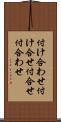 付け合わせ付
け合せ付合せ
付合わせ